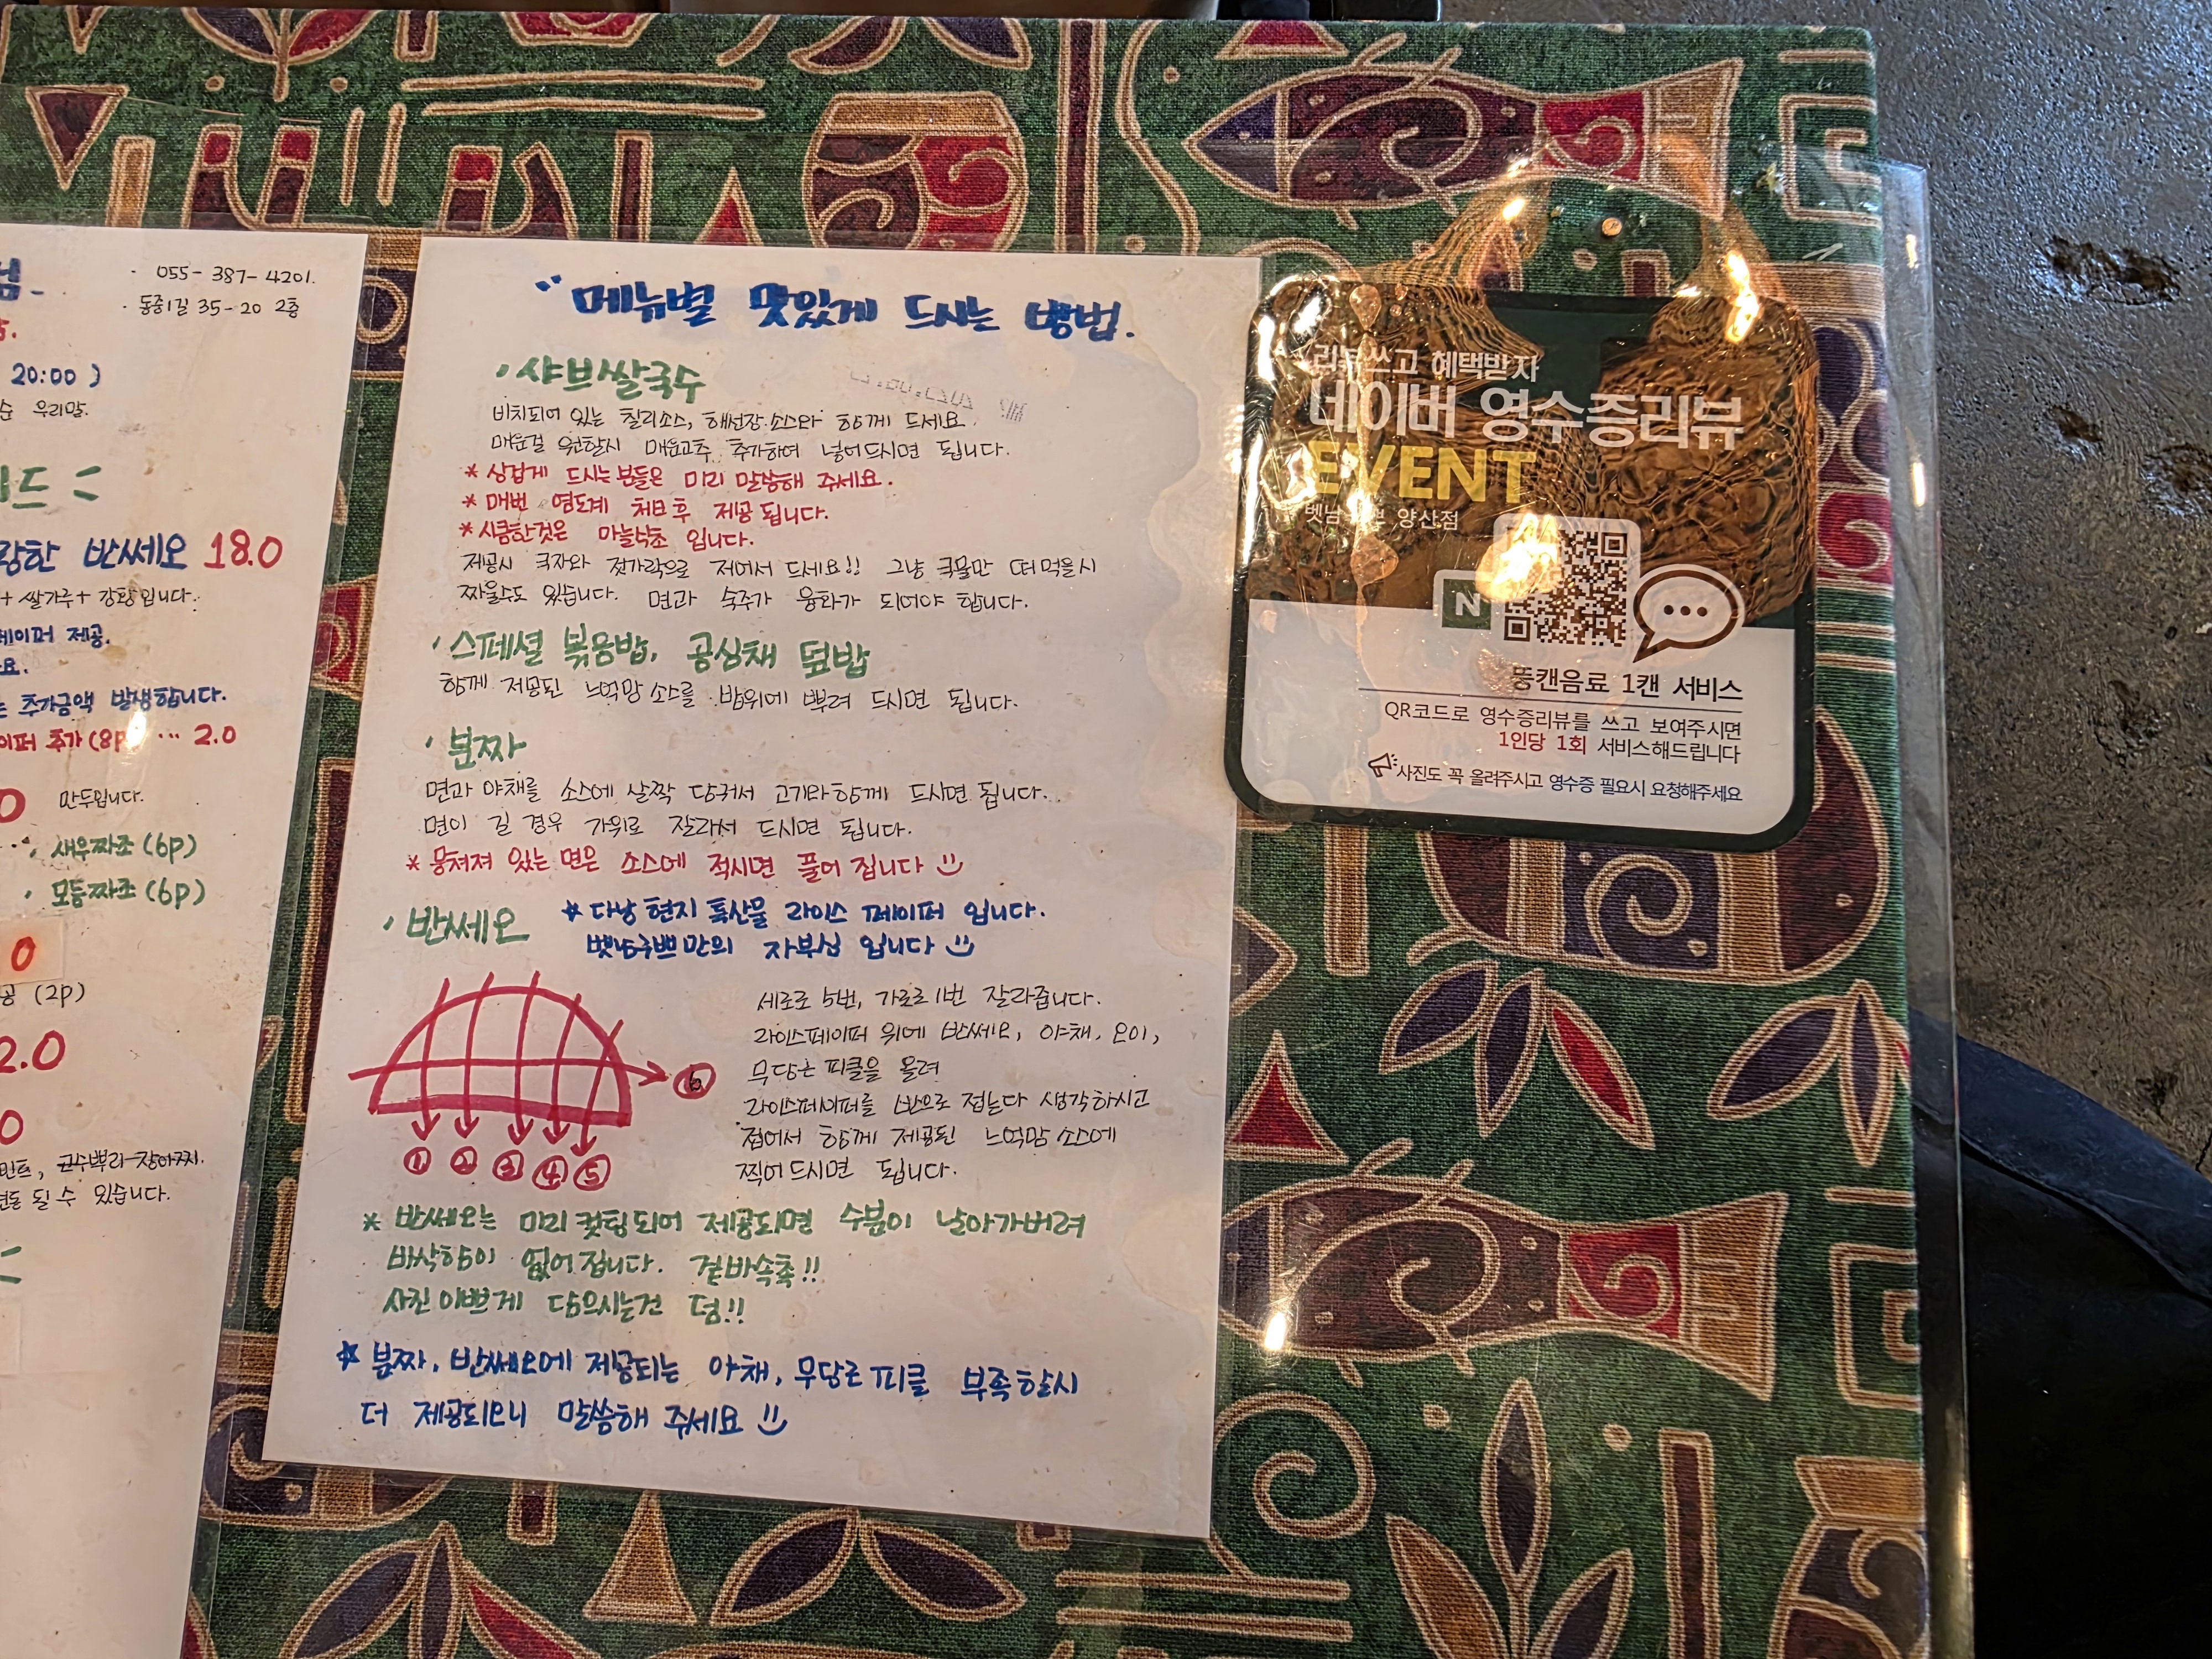 055-387-4201.
동중1길 35-20 2층
20:00 )
우리말.
반쎄오 18.0
+ 쌀가루 + 강황입니다.
페이퍼 제공.
추가금액 발생합니다.
추가(8p) ... 2.0
만두입니다.
새우짜조 (6p)
모듬짜조 (6p)
0
(2p)
2.0
0
될 수 있습니다.
메뉴별 맛있게 드시는 방법.
· 샤브쌀국수
비치되어 있는 칠리소스, 해선장 소스와 함께 드세요.
매운걸 원할시 매운고추 추가하여 넣어드시면 됩니다.
* 싱겁게 드시는분들은 미리 말씀해 주세요.
* 매번 염도계 체크후 제공됩니다.
* 시큼한것은 마늘식초 입니다.
제공시 국자와 젓가락으로 저어서 드세요!! 그냥 국물만 떠먹을시
짜울수도 있습니다. 면과 숙주가 융화가 되어야 합니다.
· 스페셜 볶음밥, 공심채 덮밥
함께 제공된 느억맘소스를 밥위에 뿌려 드시면 됩니다.
· 분짜
면과 야채를 소스에 살짝 담궈서 고기와함께 드시면 됩니다.
면이 길 경우 가위로 잘라서 드시면 됩니다.
* 뭉쳐져 있는 면은 소스에 적시면 풀어 집니다
· 반쎄오 * 다낭 현지 특산물 라이스 페이퍼 입니다.
벳남쿠쁘만의 자부심 입니다
세로로 5번, 가로로 1번 잘라줍니다.
라이스페이퍼 위에 반쎄오, 야채, 오이,
무당근 피클을 올려
라이스페이퍼를 반으로 접는다 생각하시고
접어서 함께 제공된 느억맘 소스에
찍어 드시면 됩니다.
6
1 2 3 4 5
* 반쎄오는 미리 컷팅되어 제공되면 수분이 날아가버려
바삭함이 없어 집니다. 겉바속촉!!
사진 이쁘게 담으시는건 덤!!
* 분짜, 반쎄오에 제공되는 야채, 무당근피클 부족할시
더 제공되오니 말씀해 주세요
리뷰쓰고 혜택받자
네이버 영수증리뷰
EVENT
양산점
N
뚱캔음료 1캔 서비스
QR코드로 영수증리뷰를 쓰고 보여주시면
1인당 1회 서비스해드립니다
사진도 꼭 올려주시고 영수증 필요시 요청해주세요